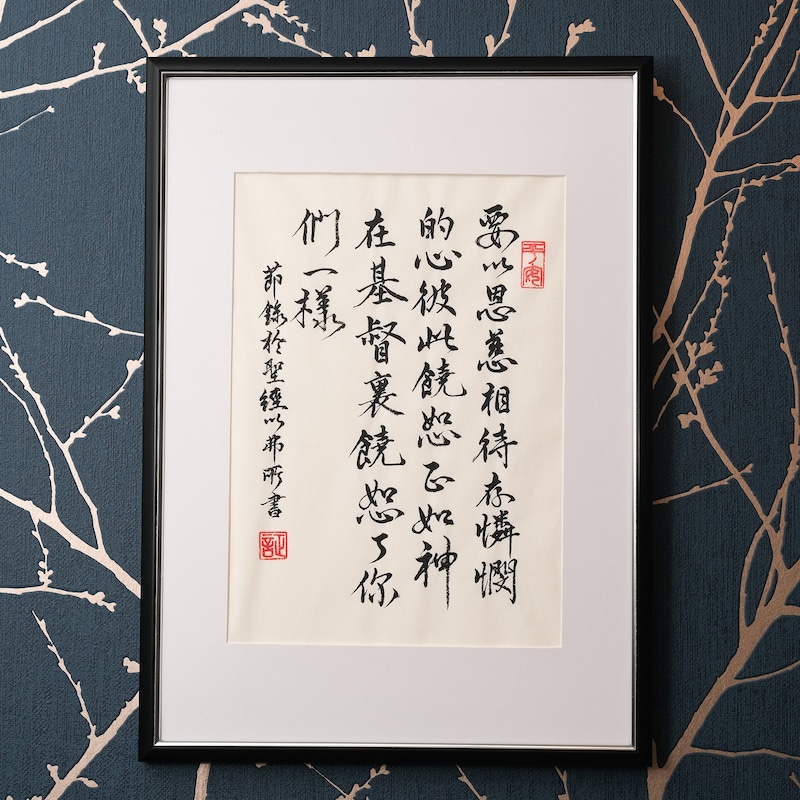 要以恩慈相待存憐憫
的心彼此饒恕正如神
在基督裏饒恕了你
們一樣
節錄於聖經以弗所書
平安
証